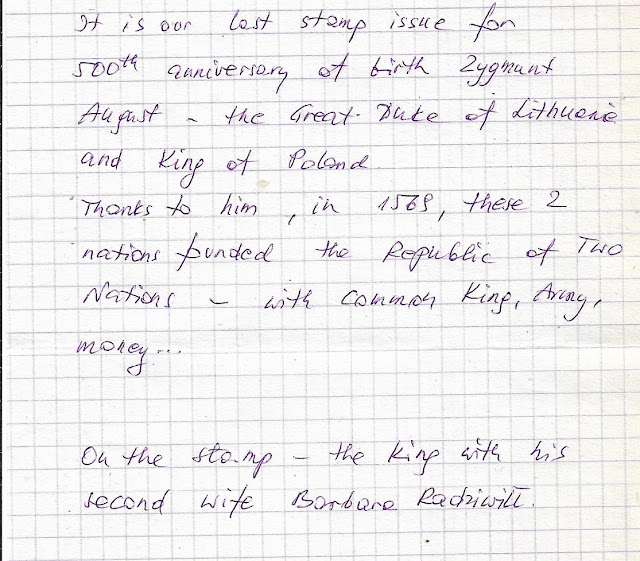 It is our last stamp issue for
500th anniversary of birth Zygmunt
August - the Great Duke of Lithuania
and King of Poland.
Thanks to him, in 1569, these 2
nations funded the Republic of Two
Nations - with common King, Army,
money...
On the stamp - the King with his
second wife Barbara Radziwiłł.